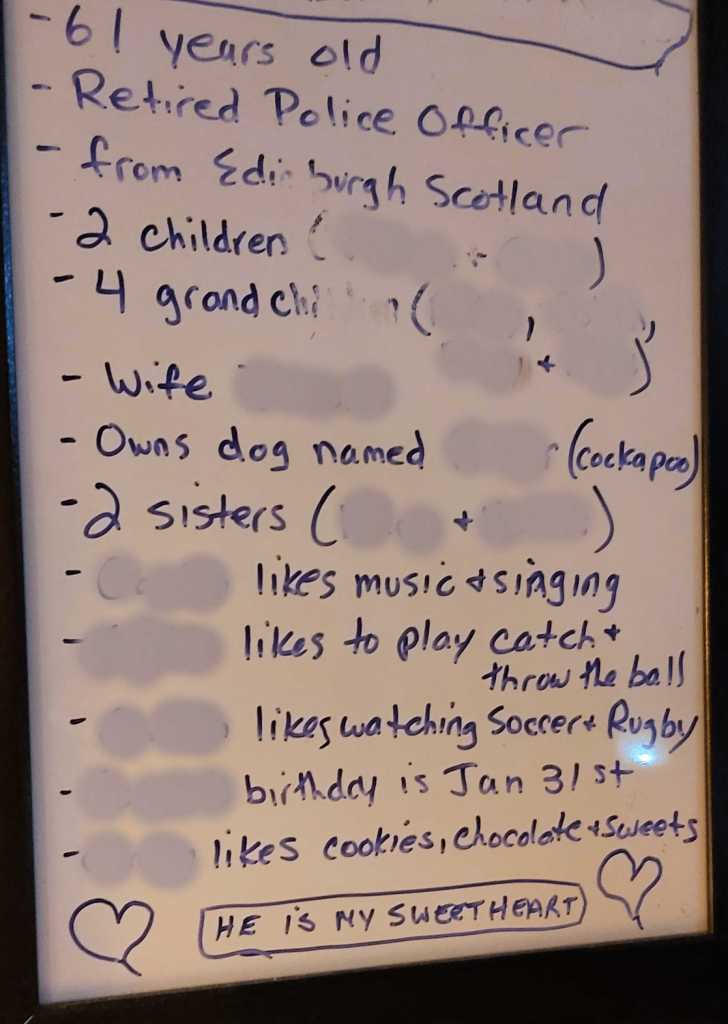 - 61 years old
- Retired Police Officer
- from Edinburgh Scotland
- 2 children ( + )
- 4 grandchildren ( ,   ,
+ )
- Wife
- Owns dog named (cockapoo)
- 2 sisters ( + )
- likes music + singing
- likes to play catch +
throw the ball
- likes watching Soccer + Rugby
- birthday is Jan 31st
- likes cookies, chocolate + sweets
HE IS MY SWEETHEART